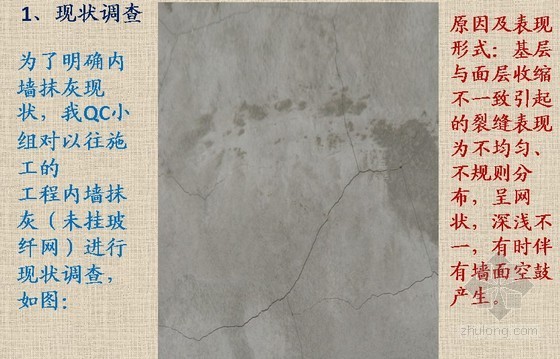 1、现状调查
为了明确内
墙抹灰现
状，我QC小
组对以往施
工的
工程内墙抹
灰（未挂玻
纤网）进行
现状调查，
如图：
原因及表现
形式：基层
与面层收缩
不一致引起
的裂缝表现
为不均匀、
不规则分
布，呈网
状，深浅不
一，有时伴
有墙面空鼓
产生。
zhulong.com